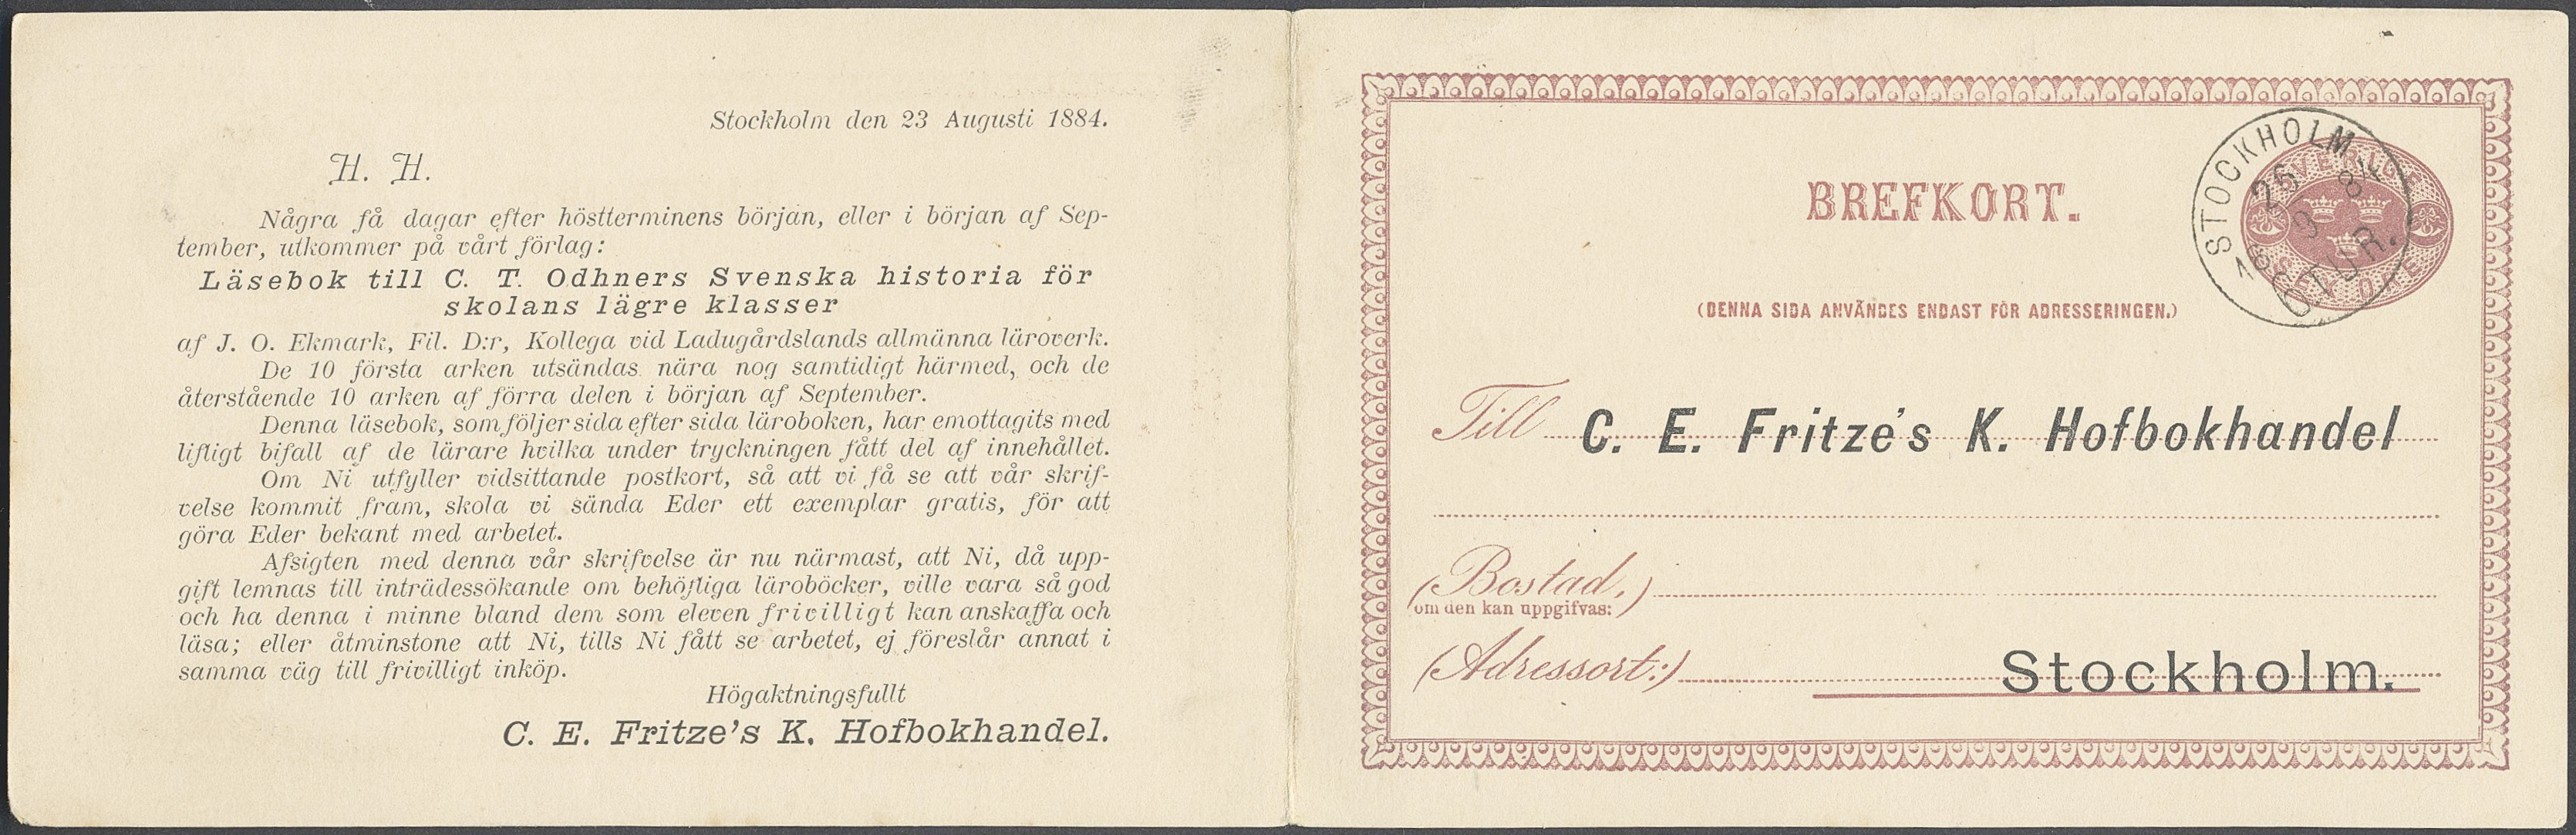 Stockholm den 23 Augusti 1884.
H. H.
Några få dagar efter höstterminens början, eller i början af Sep-
tember, utkommer på vårt förlag:
Läsebok till C. T. Odhners Svenska historia för
skolans lägre klasser
af J. O. Ekmark, Fil. D:r, Kollega vid Ladugårdslands allmänna läroverk.
De 10 första arken utsändas nära nog samtidigt härmed, och de
återstående 10 arken af förra delen i början af September.
Denna läsebok, som följer sida efter sida läroboken, har emottagits med
lifligt bifall af de lärare hvilka under tryckningen fått del af innehållet.
Om Ni utfyller vidsittande postkort, så att vi få se att vår skrif-
velse kommit fram, skola vi sända Eder ett exemplar gratis, för att
göra Eder bekant med arbetet.
Afsigten med denna vår skrifvelse är nu närmast, att Ni, då upp-
gift lemnas till inträdessökande om behöfliga läroböcker, ville vara så god
och ha denna i minne bland dem som eleven frivilligt kan anskaffa och
läsa; eller åtminstone att Ni, tills Ni fått se arbetet, ej föreslår annat i
samma väg till frivilligt inköp.
Högaktningsfullt
C. E. Fritze's K. Hofbokhandel.
BREFKORT.
STOCKHOLM
26 9 84
6 TUR.
SVERIGE
SEX ÖRE
(DENNA SIDA ANVÄNDES ENDAST FÖR ADRESSERINGEN.)
Till C. E. Fritze's K. Hofbokhandel
(Bostad,)
om den kan uppgifvas:
(Adressort:) Stockholm.